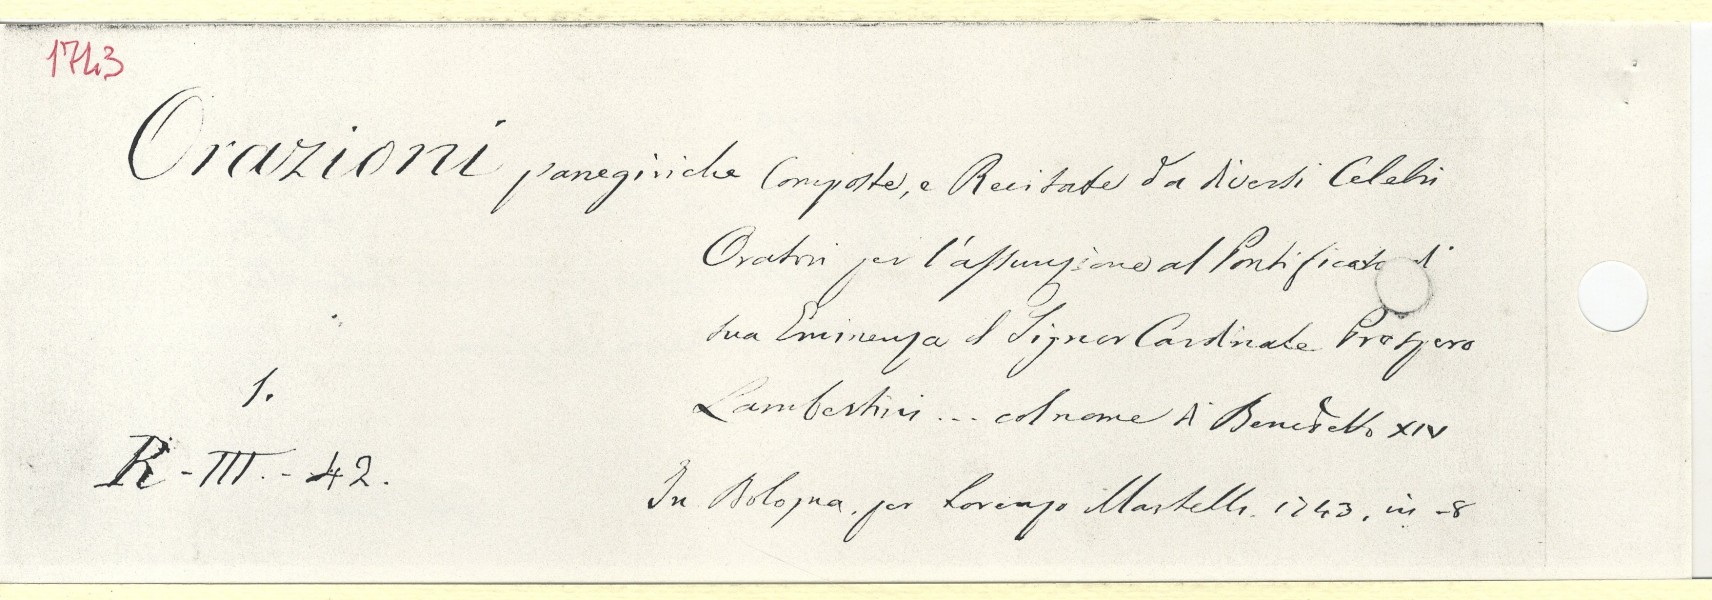 1743
Orazioni panegiriche Composte, e Recitate da diversi Celebri
Oratori per l'assunzione al Pontificato di
sua Eminenza il Signor Cardinale Prospero
Lambertini ... col nome di Benedetto XIV
1.
R - III. - 42.
In Bologna, per Lorenzo Martelli. 1743, in -8